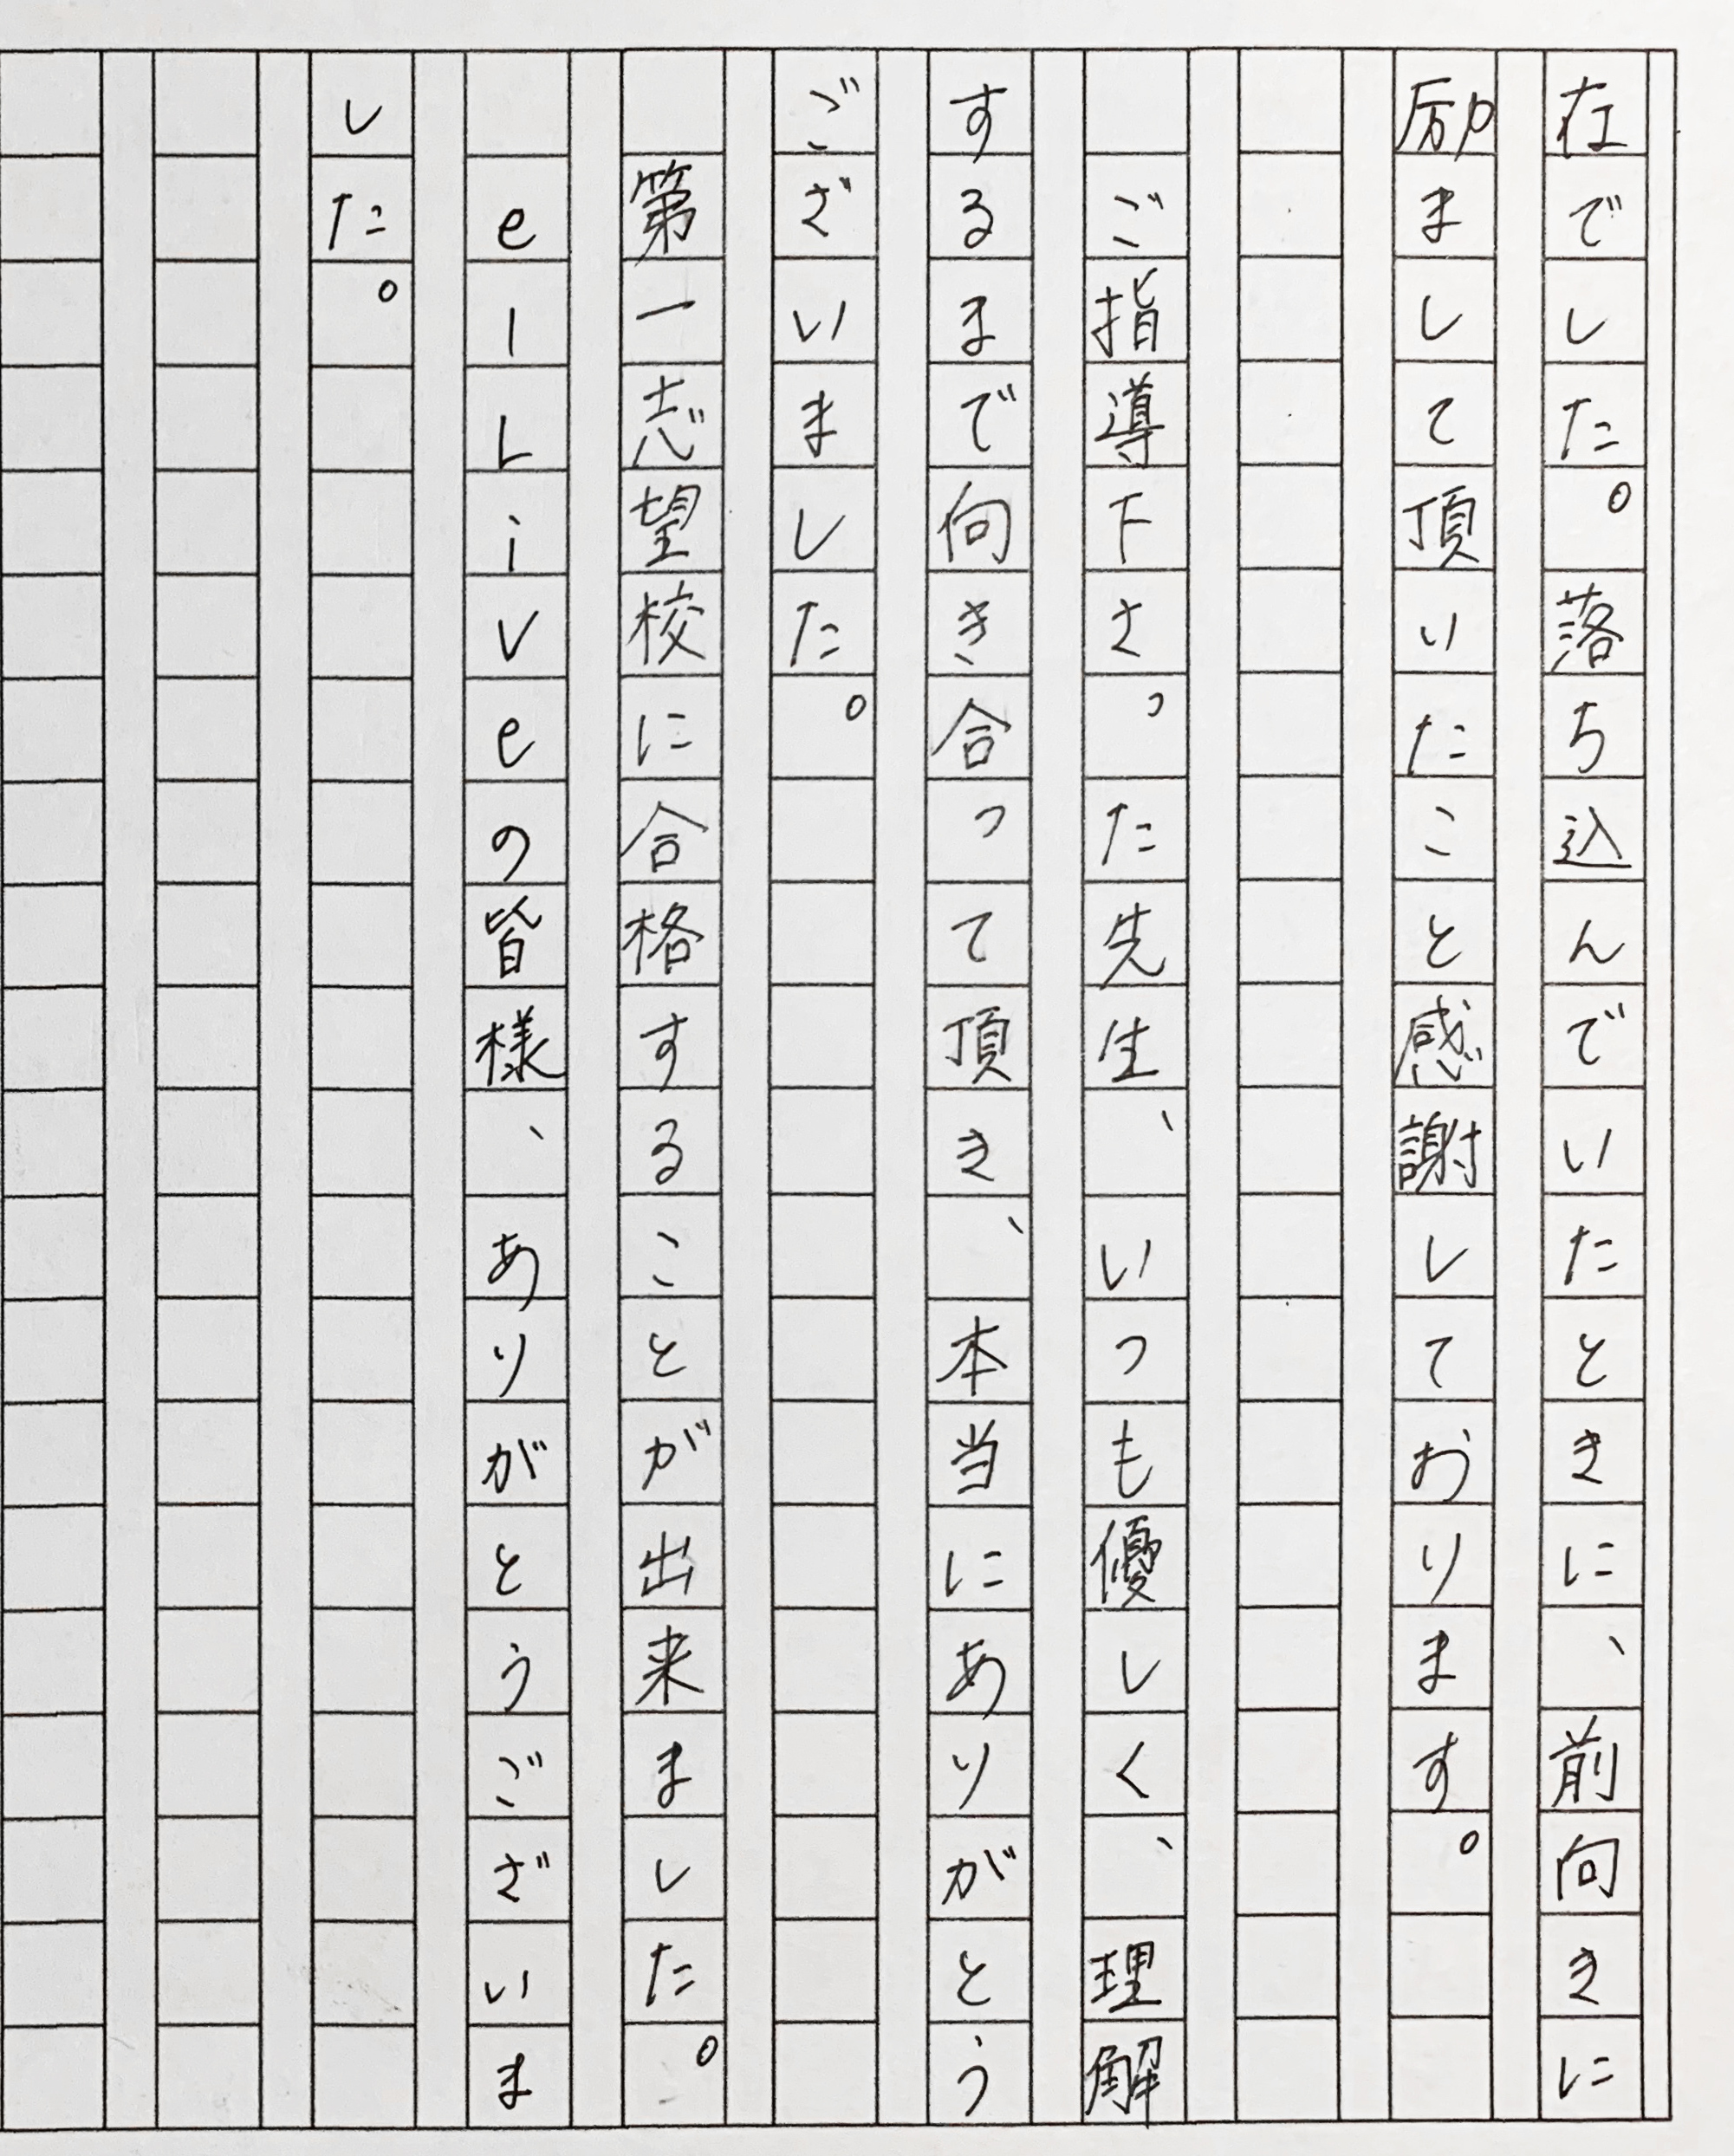 在でした。落ち込んでいたときに、前向きに
励まして頂いたこと感謝しております。
ご指導下さった先生、いつも優しく、理解
するまで向き合って頂き、本当にありがとう
ございました。
第一志望校に合格することが出来ました。
e-Liveの皆様、ありがとうございま
した。